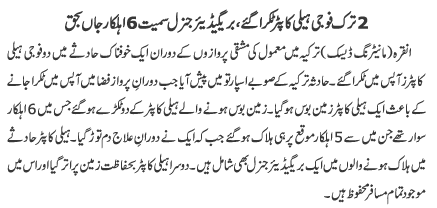 2 ترک فوجی ہیلی کاپٹر ٹکرا گئے، بریگیڈیئر جنرل سمیت 6 اہلکار جاں بحق
انقرہ (مانیٹرنگ ڈیسک) ترکیہ میں معمول کی مشقی پروازوں کے دوران ایک خوفناک حادثے میں دو فوجی ہیلی
کاپٹر آپس میں ٹکرا گئے۔ حادثہ ترکیہ کے صوبے اسپارتو میں پیش آیا جب دوران پرواز فضا میں آپس میں ٹکرا جانے
کے باعث ایک ہیلی کاپٹر زمین بوس ہو گیا۔ زمین بوس ہونے والے ہیلی کاپٹر کے دو ٹکڑے ہو گئے جس میں 6 اہلکار
سوار تھے جن میں سے 5 اہلکار موقع پر ہی ہلاک ہو گئے جب کہ ایک نے دوران علاج دم توڑ گیا۔ ہیلی کاپٹر حادثے
میں ہلاک ہونے والوں میں ایک بریگیڈیئر جنرل بھی شامل ہیں۔ دوسرا ہیلی کاپٹر بحفاظت زمین پر اتر گیا اور اس میں
موجود تمام مسافر محفوظ ہیں۔